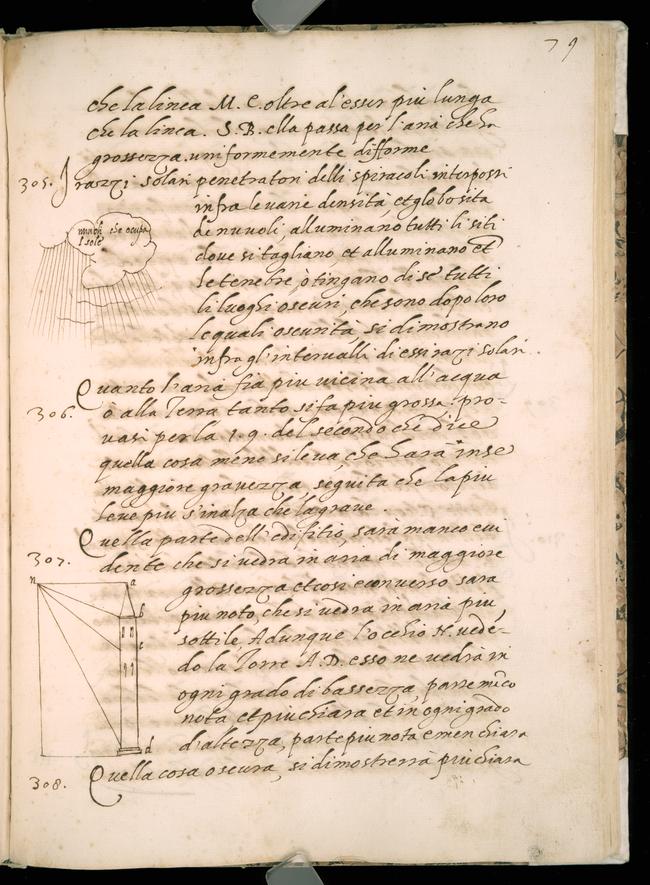 79
che la linea M. C. oltre al'esser più lunga
che la linea. S. B. ella passa per l'aria che ha
grossezza uniformemente difforme
305. I razzi solari penetratori delli spiracoli interposti
infra le varie densità, et globosità
de nuvoli, alluminano tutti li siti
dove si tagliano et alluminano et
le tenebre, ò tingano di se tutti
li luoghi oscuri, che sono dopo loro
le quali oscurita si dimostrano
infra gl'intervalli di essi razi solari.
nuvoli che ocupa
l sole
Quanto l'aria fia piu vicina all'acqua
306. o alla Terra tanto si fa piu grossa. pro-
vasi per la 19. del secondo che dice
quella cosa meno si leva, che harà in se
maggiore gravezza, séguita che la piu
leve piu s'inalza che la grave.
Quella parte dell'edifitio, sarà manco evi
307. dente che si vedra in aria di maggiore
grossezza et cosi econverso sara
piu noto, che si vedra in aria piu
sottile Adunque l'occhio N. vede-
do la Torre A. D. esso ne vedrà in
ogni grado di bassezza, parte mico
nota, et piu chiara et in ogni grado
d'altezza, parte piu nota e men chiara
n a
b
c
d
308. Quella cosa oscura, si dimosterrà più chiara